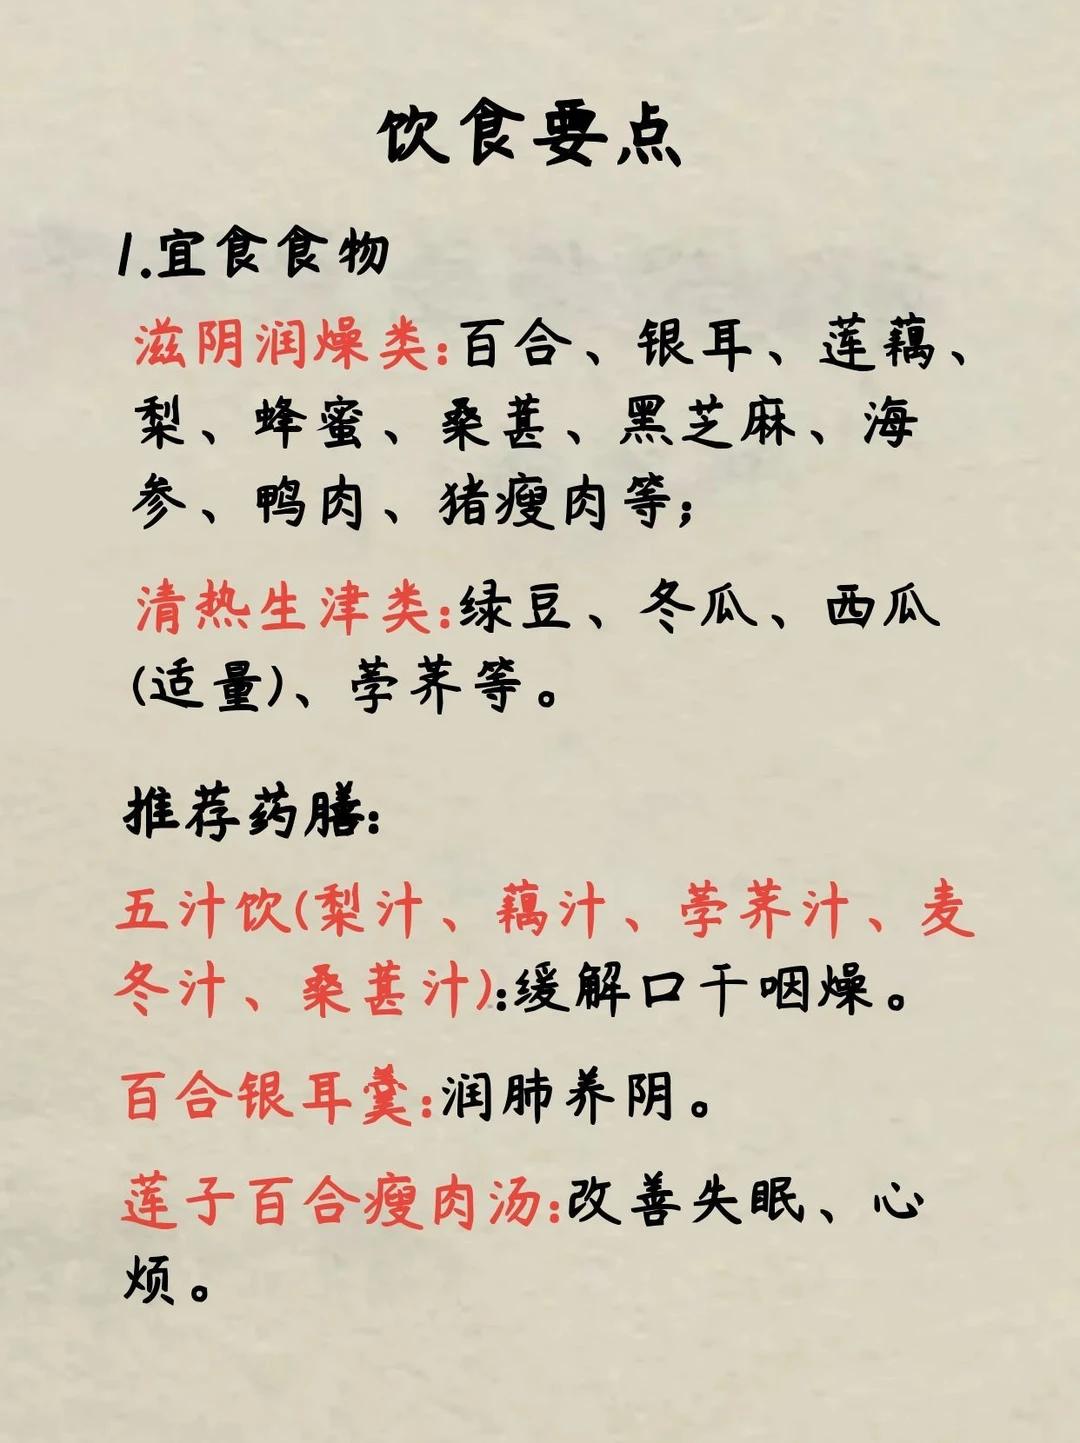 饮食要点
1.宜食食物
滋阴润燥类:百合、银耳、莲藕、
梨、蜂蜜、桑葚、黑芝麻、海
参、鸭肉、猪瘦肉等;
清热生津类:绿豆、冬瓜、西瓜
(适量)、荸荠等。
推荐药膳:
五汁饮(梨汁、藕汁、荸荠汁、麦
冬汁、桑葚汁):缓解口干咽燥。
百合银耳羹:润肺养阴。
莲子百合瘦肉汤:改善失眠、心
烦。